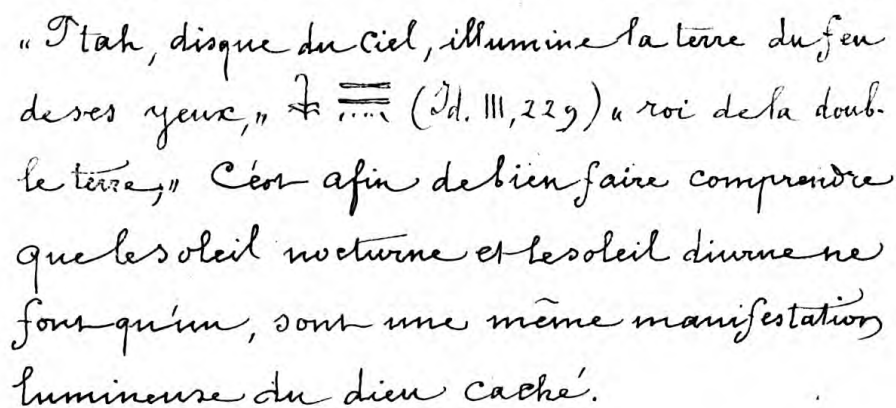 „Ptah, disque du Ciel, illumine la terre du feu
de ses yeux,„ 𓇓𓇿𓇿 (Id. III, 229) „ roi de la doub-
le terre,„ C'est afin de bien faire comprendre
que le soleil nocturne et le soleil diurne ne
font qu'un, sont une même manifestation
lumineuse du dieu caché.